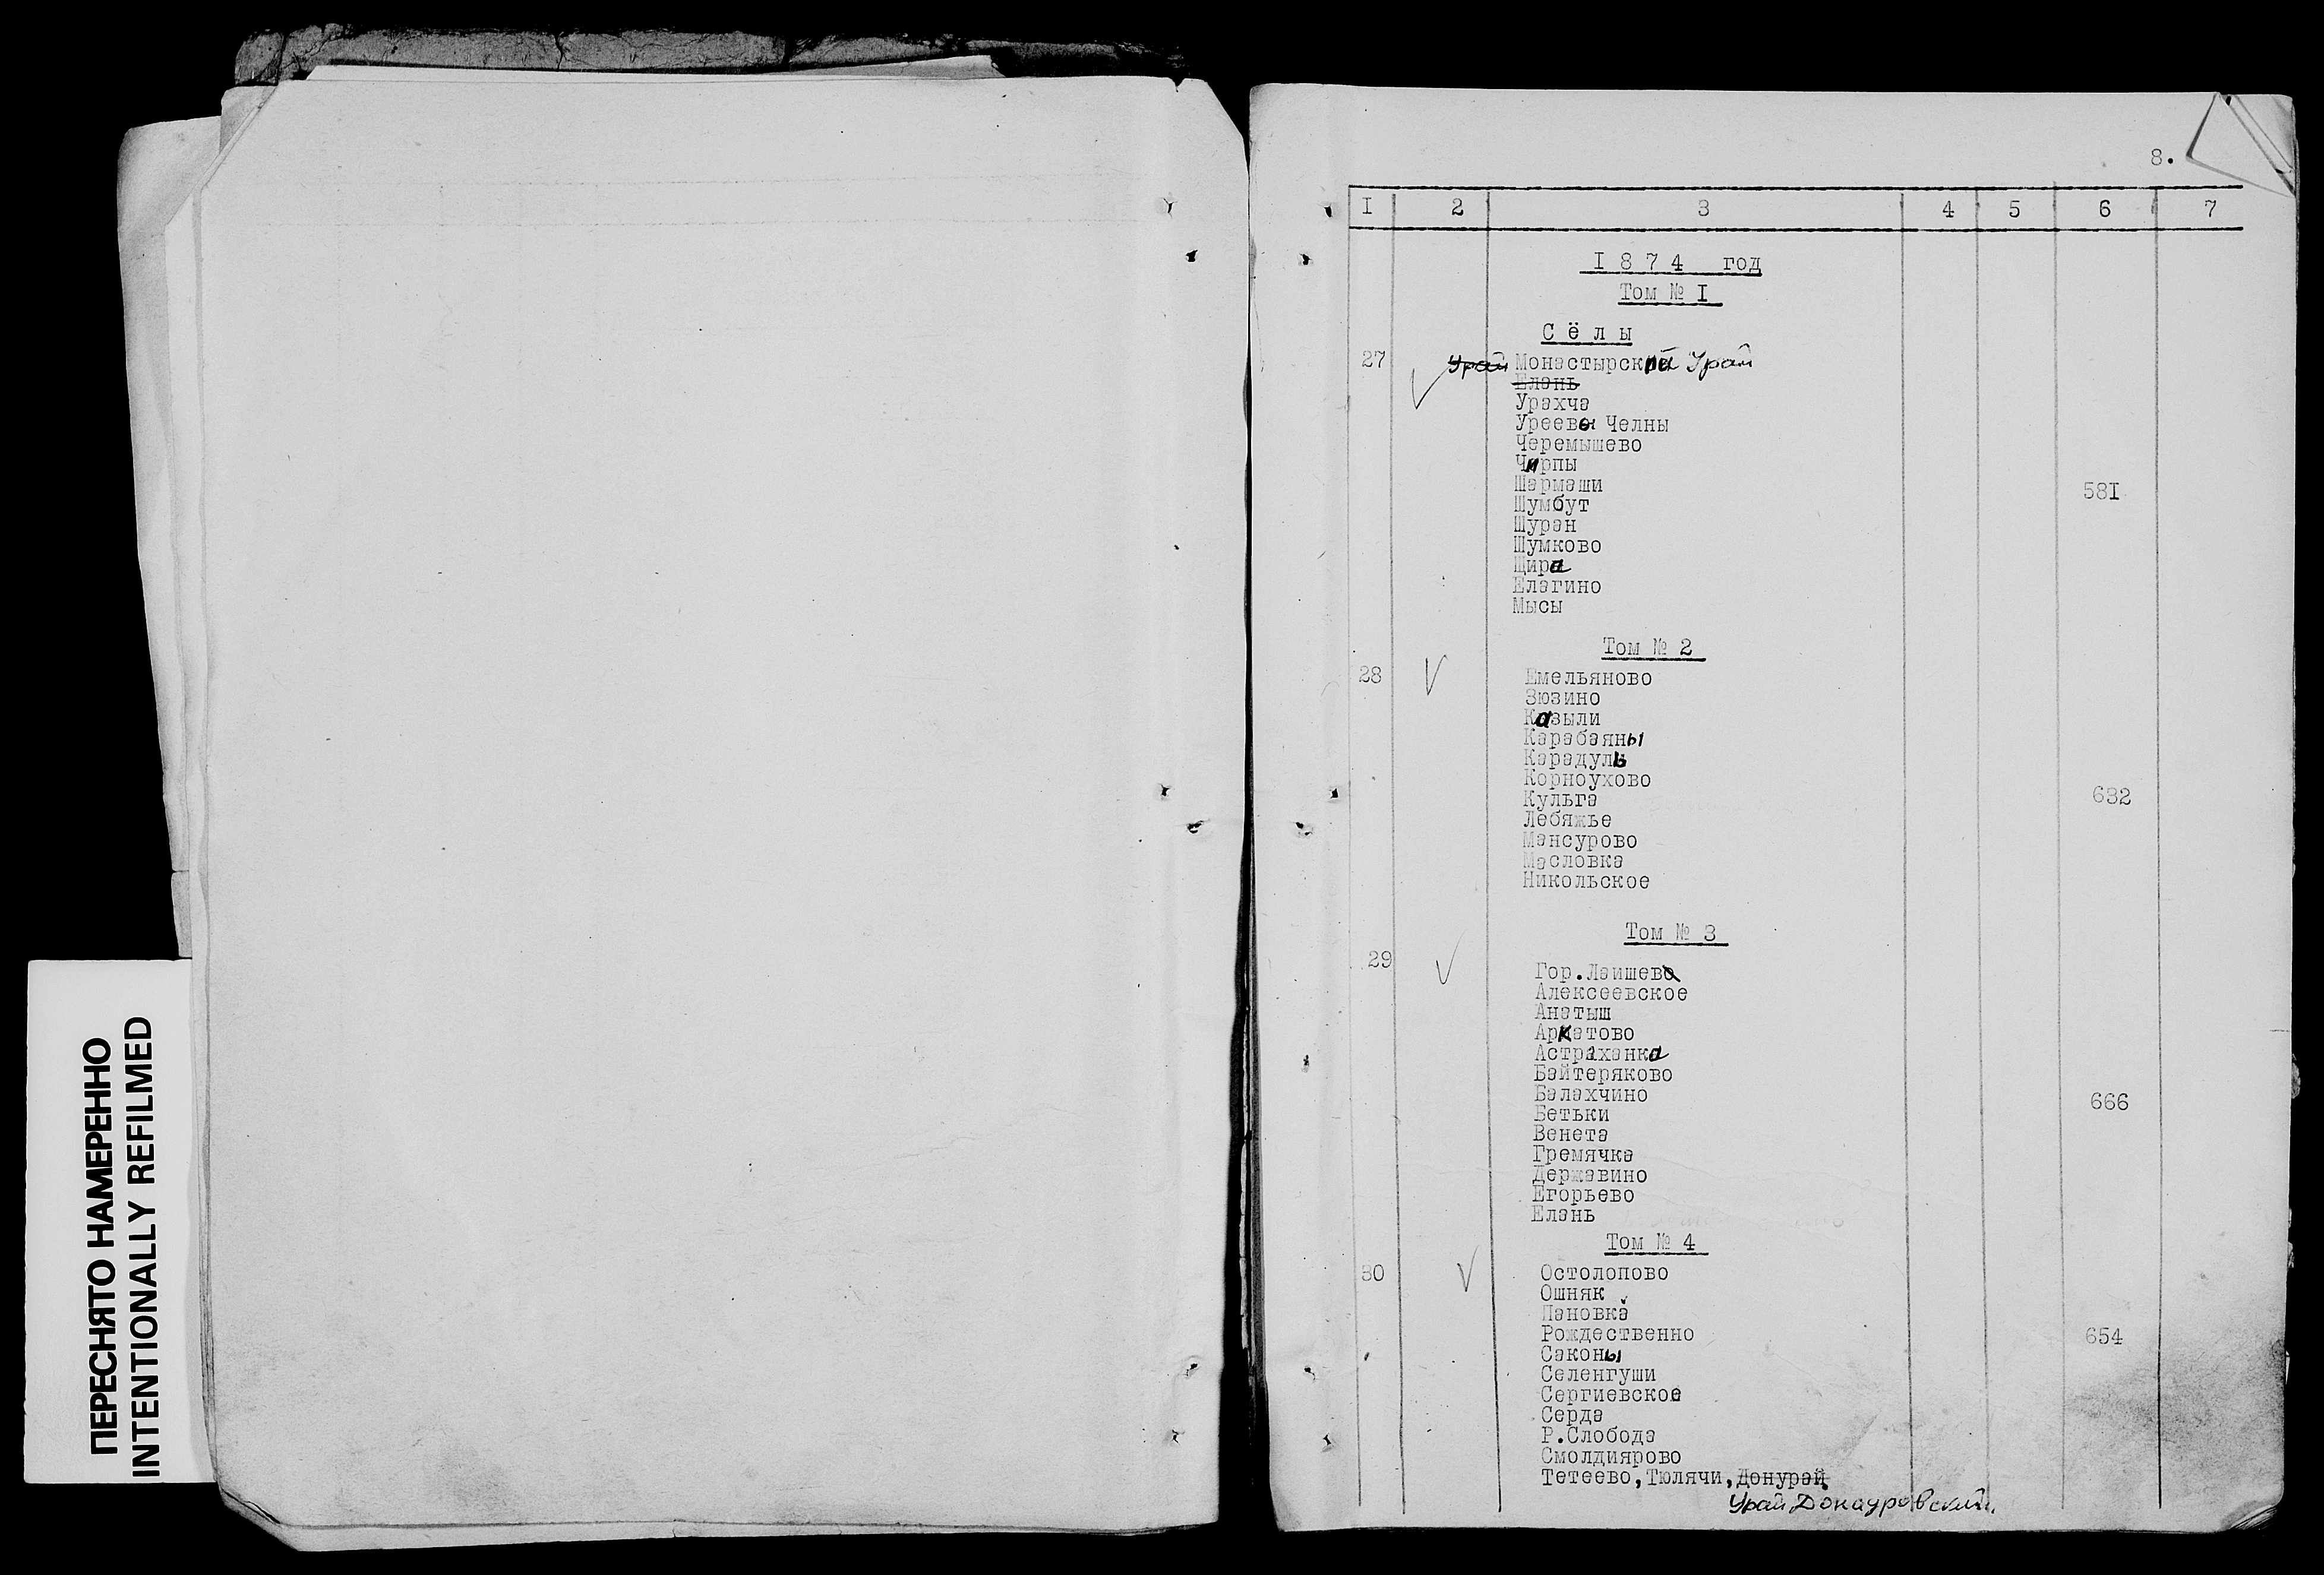 ПЕРЕСНЯТО НАМЕРЕННО
INTENTIONALLY REFILMED
8.
I 2 3 4 5 6 7
I 8 7 4 год
Том № I
С ё л ы
27 Урай Монастырский Урай
Елань
Урахча
Уреевы Челны
Черемышево
Чирпы
Шармаши
58I
Шумбут
Шуран
Шумково
Щира
Елагино
Мысы
Том № 2
28 Емельяново
Зюзино
Казыли
Карабаяны
Карадуль
Корноухово
Кульга 632
Лебяжье
Мансурово
Масловка
Никольское
Том № 3
29 Гор.Лаишев
Алексеевское
Анатыш
Аркатово
Астраханка
Байтеряково
Балахчино
Бетьки 666
Венета
Гремячка
Державино
Егорьево
Елань
Том № 4
30 Остолопово
Ошняк
Пановка
Рождественно 654
Саконы
Селенгуши
Сергиевское
Серда
Р.Слобода
Смолдиярово
Тетеево,Тюлячи,Донурай
Урай Донауровский.